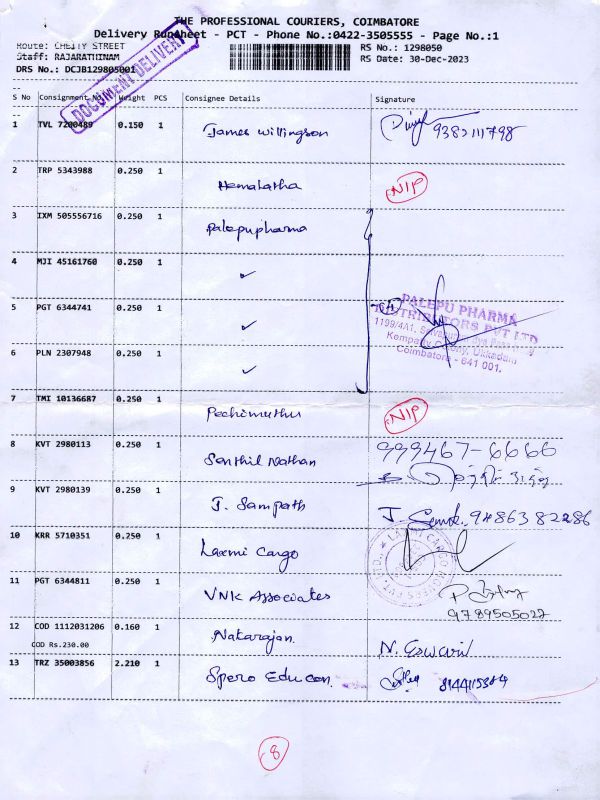 THE PROFESSIONAL COURIERS, COIMBATORE
Delivery RunSheet - PCT - Phone No.:0422-3505555 - Page No.:1
Route: CHETTY STREET RS No.: 1298050
Staff: RAJARATHINAM RS Date: 30-Dec-2023
DRS No.: DCJB129805001
DOCUMENT DELIVERY
S No Consignment No Weight PCS Consignee Details Signature
1 TVL 7200489 0.150 1 James Willingson 9382111798
2 TRP 5343988 0.250 1 Hemalatha NIP
3 IXM 505556716 0.250 1 Palepupharma
4 MJI 45161760 0.250 1 ✓
5 PGT 6344741 0.250 1 ✓
PALEPU PHARMA
DISTRIBUTORS PVT LTD
1199/4A1,
Kempatty Colony, Ukkadam
Coimbatore - 641 001.
6 PLN 2307948 0.250 1 ✓
7 TMI 10136687 0.250 1 Pechimuthu NIP
8 KVT 2980113 0.250 1 Senthil Nathan 999467-6666
9 KVT 2980139 0.250 1 J. Sampath J. 9486382286
10 KRR 5710351 0.250 1 Laxmi Cargo
11 PGT 6344811 0.250 1 VNK Associates
9789505027
12 COD 1112031206 0.160 1 Natarajan N. Eswari
COD Rs.230.00
13 TRZ 35003856 2.210 1 Spero Educon
8